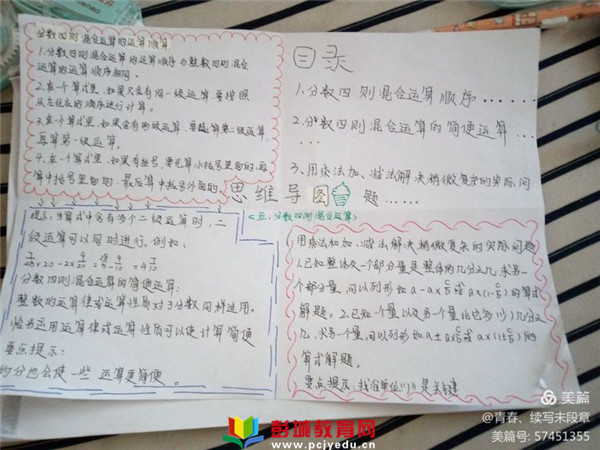 分数四则混合运算的运算顺序
1.分数四则混合运算的运算顺序与整数四则混合
运算的运算顺序相同.
2.在一个算式里,如果只含有同一级运算,要按照
从左往右的顺序进行计算。
3.在一个算式里,如果含有两级运算,要先算第二级运算,
再算第一级运算.
4.在一个算式里,如果有括号,要先算小括号里面的,再
算中括号里面的,最后算中括号外面的.
目录
1.分数四则混合运算顺序......
2.分数四则混合运算的简便运算...
...
3.用乘法加、减法解决稍微复杂的实际问
题......
思维导图
<五.分数四则混合运算>
提示:当算式中含有两个二级运算时,二
级运算可以同时进行.例如:
分数四则混合运算的简便运算:
整数的运算律或运算性质对于分数同样适用。
恰当运用运算律或运算性质可以使计算简便
要点提示:
约分也会使一些运算更简便。
用乘法和加、减法解决稍微复杂的实际问题
1.已知整体及一个部分量是整体的几分之几,求另一
个部分量,可以列形如a-a×或a×(1-)的算式
解题。2.已知一个量以及另一个量比它多(少)几分之
几,求另一个量,可以列形如a±a×或a×(1±)的
算式解题。
要点提示:找准单位"1"是关键
美篇
@青春、续写未段章
美篇号: 57451355
彭城教育网
www.pcjyedu.cn